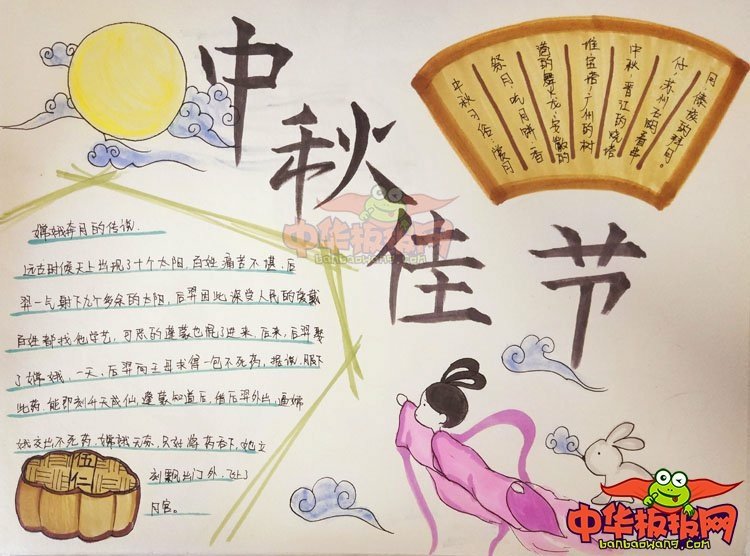 中秋佳节
中秋习俗:赏月
祭月,吃月饼,香
港的舞火龙,安徽的
堆宝塔,广州的树
中秋,晋江的烧塔
仔,苏州石湖看串
月,傣族的拜月。
嫦娥奔月的传说.
远古时候天上出现了十个太阳,百姓痛苦不堪,后
羿一气射下九个多余的太阳,后羿因此深受人民的爱戴
百姓都找他学艺,可恶的蓬蒙也混了进来,后来,后羿娶
了嫦娥,一天,后羿向王母求得一包不死药,据说,服下
此药,能即刻升天成仙,蓬蒙知道后,借后羿外出,逼嫦
娥交出不死药,嫦娥无奈,只好将药吞下,她立
刻飘出门外,飞上
月宫。
伍仁
中华板报网
banbaowang.com
中华板报网
banbaowang.com